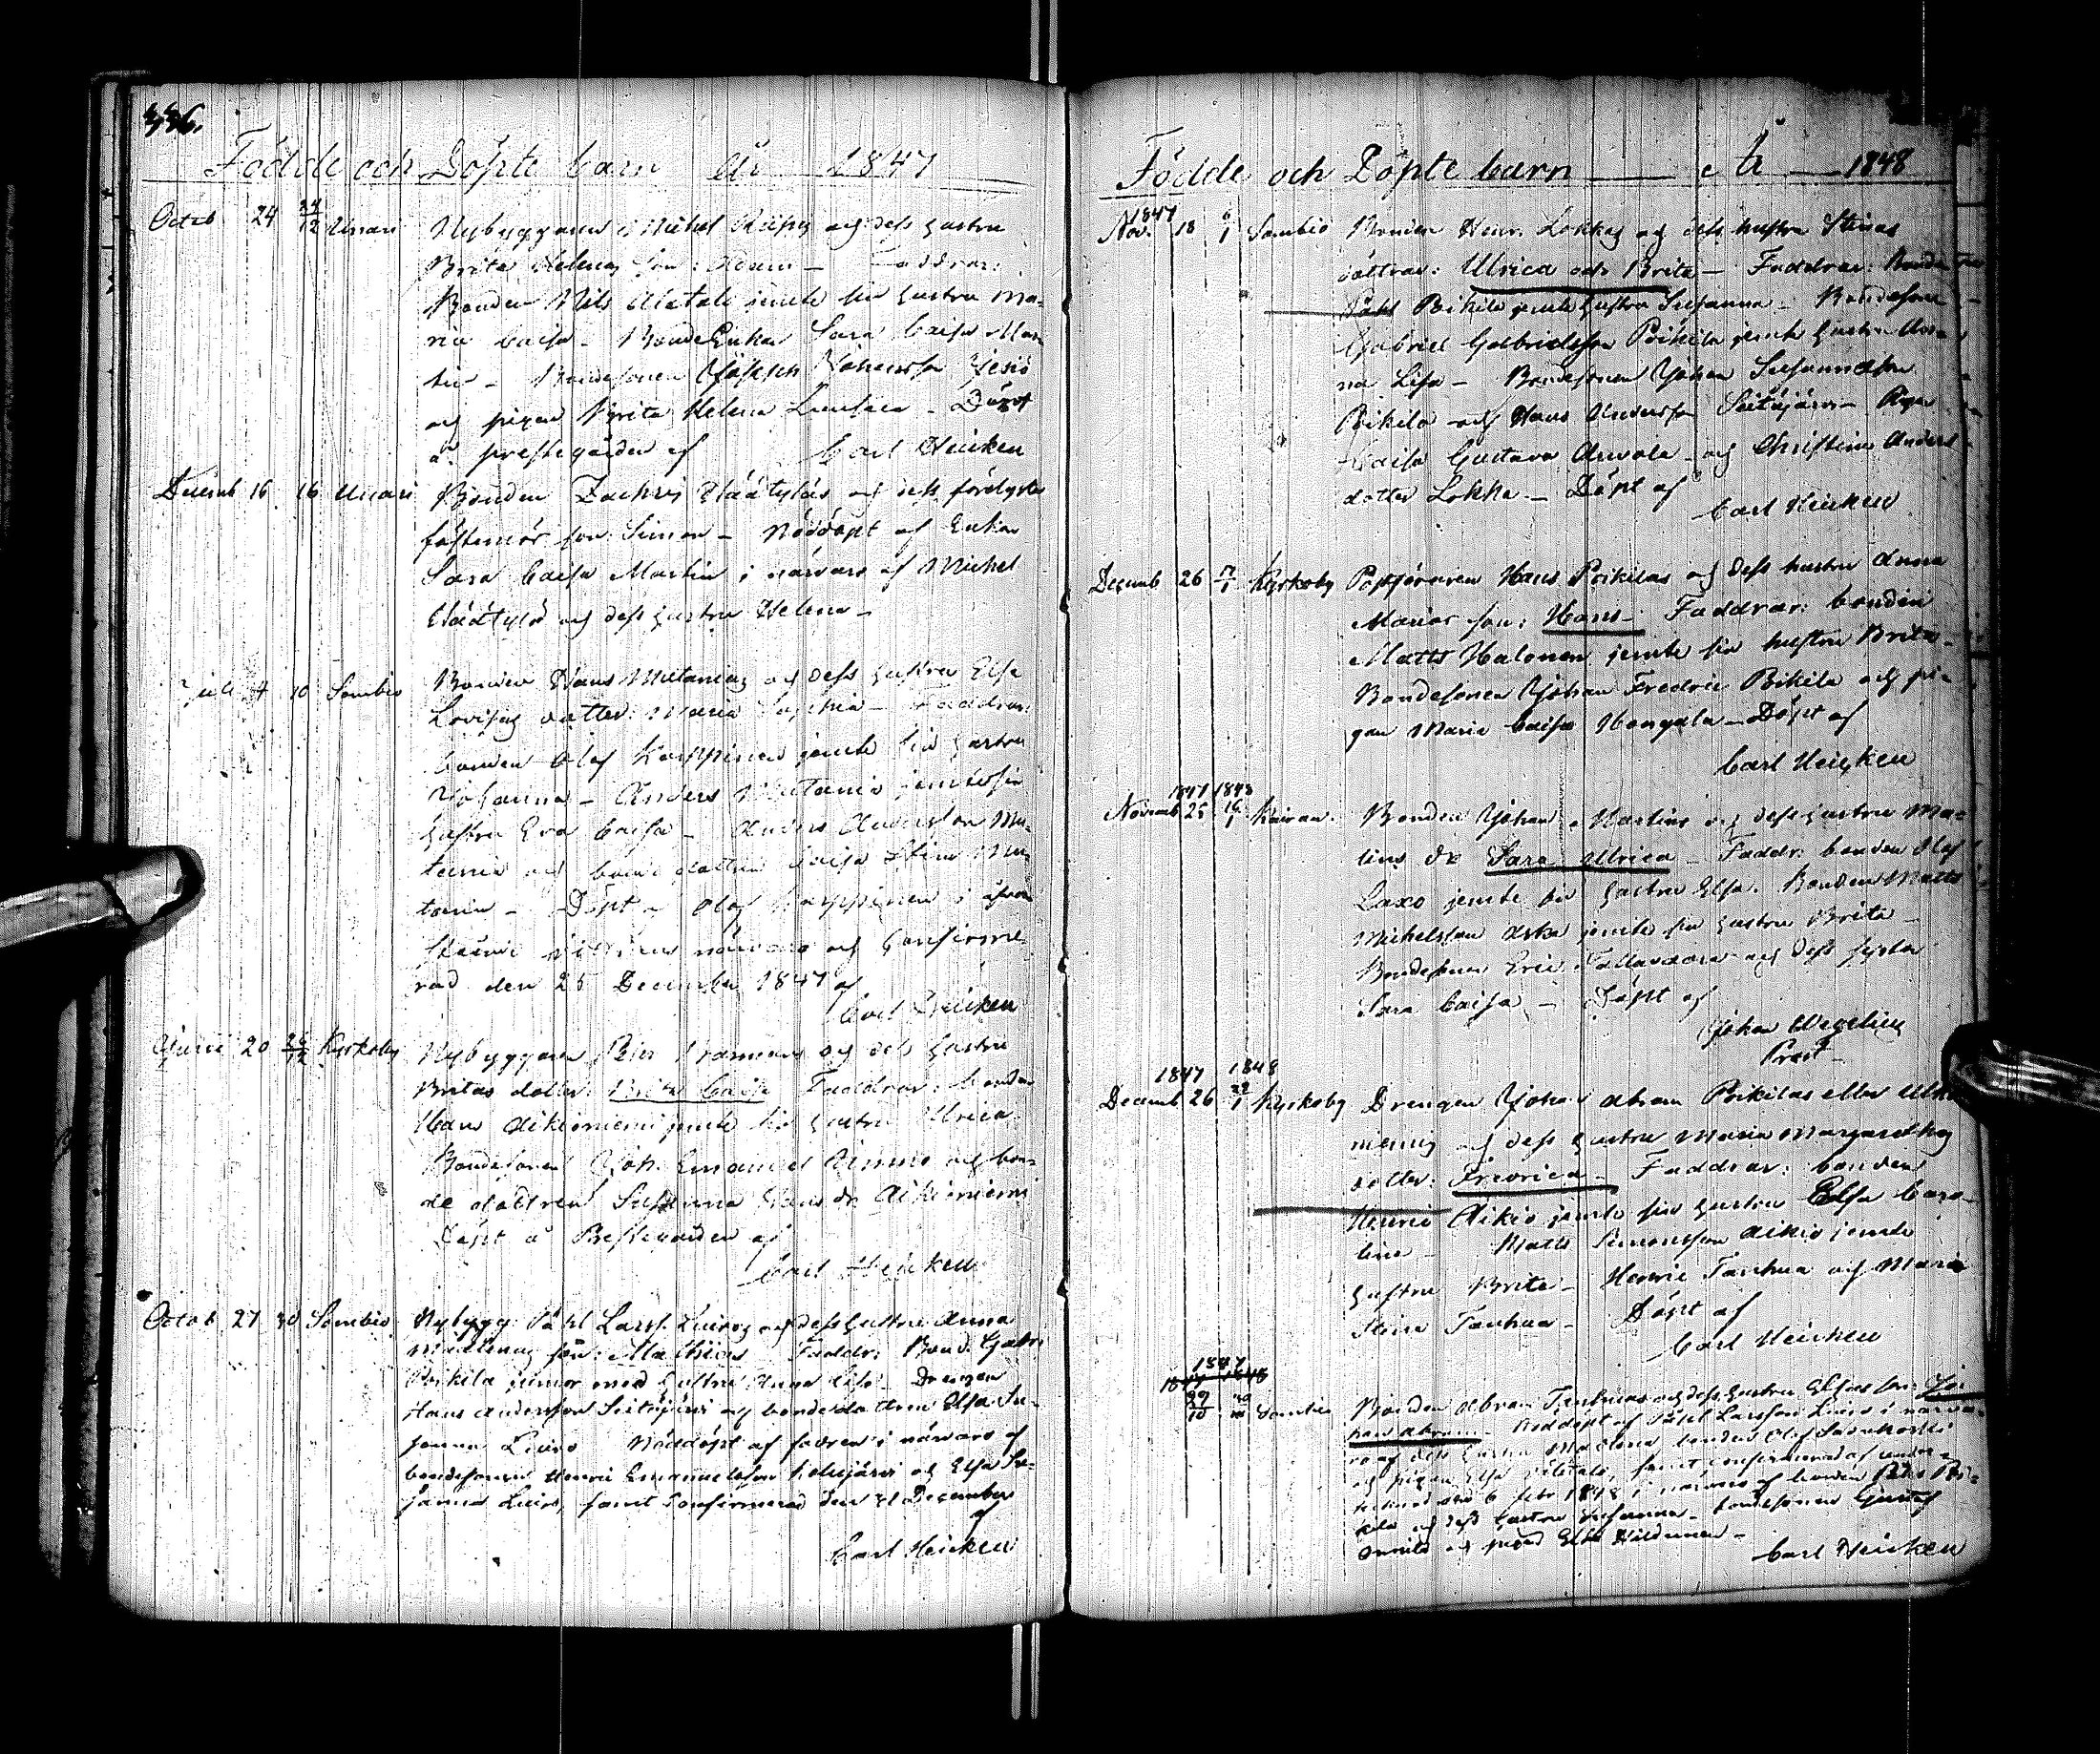 336.
Födde och Döpte barn År 1847
Octob 24 24/12 Unari Nybyggaren Michel och dess hustru
Brita Helenas son: Adam — Faddrar:
Bonden Nils Alatalo jemte sin hustru Ma-
ria Caisa — BondeEnkan Sara Caisa Mar-
tin — Bondesonen Johansson
och pigan Brita Helena — Döpt
å prestegården af Carl Heicken
Decemb 16 16 Unari Bonden Zachris och dess förelyste
fästemös son: Simon — Nöddöpt af Enkan
Sara Caisa Martin i närvaro af Michel
och dess hustru Helena —
4 10 Sombio Bonden Hans Mutanias och dess hustru Elsa
Lovisas dotter: Maria Sophia — Faddrar:
bonden Olof Karppinen jemte sin hustru
Johanna — Anders Mutania jemte sin
hustru Eva Caisa — Anders Andersson Mu-
tania och bonde dottren Caisa Stina Mu-
tania — Döpt af Olof Karppinen i
vittnens närvaro och Confirme-
rad den 25 December 1847 af
Carl Heicken
20 26/12 Kyrkoby Nybyggaren Petter och dess hustru
Britas dotter: Brita Caisa Faddrar: bonden
Hans Aikioniemi jemte sin hustru Ulrica
Bondesonen Joh. Emanuel och bon-
de dottren Susanna Hansdr Aikioniemi
Döpt å Prestegården af
Carl Heicken
Octob 27 30 Sombio Nybygg. Påhl Larss. Luiros och dess hustru Anna
Madlenas son: Mathias Faddr: Bond. Gabr.
Pokila junior med hustru Anna Lisa — Drengen
Hans Andersson Seitajärvi och bondedottren Elsa Su-
sanna Luiro Nöddöpt af fadren i närvaro af
bondesonen Henric Emanuelsson Kelujärvi och Elsa Su-
sanna Luiro, samt Confirmerad den 31 December
af
Carl Heicken
Födde och Döpte barn År 1848
1847
Nov. 18 6/1 Sombio Bonden Henr. Lokkas och dess hustru Stinas
döttrar: Ulrica och Brita — Faddrar: Bonden
Påhl Pokila jemte hustru Susanna — Bondesonen
Gabriel Gabrielsson Pokila jemte hustru An-
na Lisa — Bondesonen Johan
Pokila och Hans Andersson Seitajärvi — Pigan
Caisa Gustava Arvola — och Christina Anders
dotter Lokka — Döpt af
Carl Heicken
Decemb 26 7/1 Kyrkoby Postföraren Hans Pokilas och dess hustru Anna
Marias son: Hans — Faddrar: bonden
Matts Halonen jemte sin hustru Brita
Bondesonen Johan Fredric Pokila och pi-
gan Maria Caisa — Döpt af
Carl Heicken
1847 1848
Novemb 25 16/1 Bonden Johan Martins och dess hustru Ma-
lins dr Sara Ulrica — Faddr: bonden Olof
jemte sin hustru Elsa. Bonden Matts
Michelsson Aska jemte sin hustru Brita —
Bondesonen Eric och dess syster
Sara Caisa — Döpt af
Johan Wegelius
Prost
1847 1848
Decemb 26 29/1 Kyrkoby Drengen Johan Abram Pokilas eller
niemis och dess hustru Maria Margarethas
dotter: Fredrica — Faddrar: bonden
Henric Aikio jemte sin hustru Elsa Caro-
lina — Matts Simonsson Aikio jemte
hustru Brita — Henric Tanhua och Maria
Stina Tanhua — Döpt af
Carl Heicken
1847
1847 1848
29/10 Sombio Bonden Abram Tanhuas och dess hustru Elsas son: Jo-
han Abram — Nöddöpt af Påhl Larsson Luiro i närva-
ro af dess hustru Madlena bonden Olof
och pigan Elsa samt confirmerad af under-
tecknad den 6 Febr 1848 i närvaro af bonden Påhl Po-
kila och dess hustru Susanna — bondesonen Gustaf
och pigan Elsa
Carl Heicken